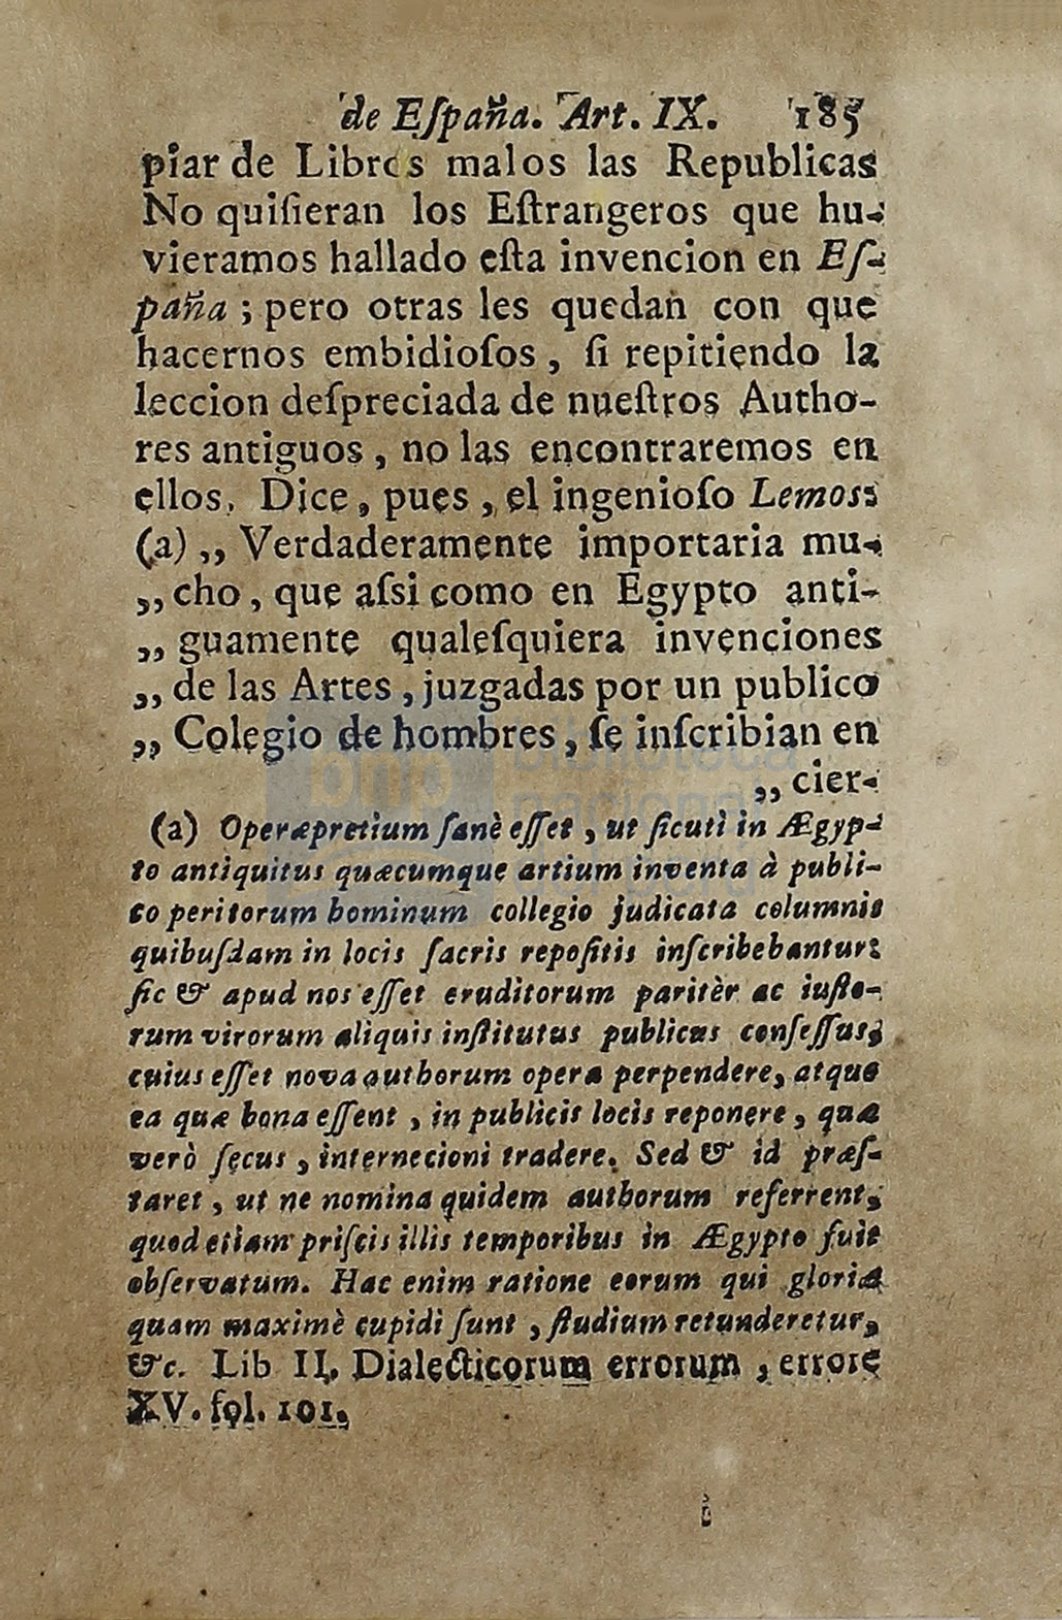 de Eſpaña. Art. IX. 185
piar de Libros malos las Republicas
No quiſieran los Eſtrangeros que hu-
vieramos hallado eſta invencion en Eſ-
paña ; pero otras les quedan con que
hacernos embidioſos , ſi repitiendo la
leccion deſpreciada de nueſtros Autho-
res antiguos , no las encontraremos en
ellos. Dice , pues , el ingenioſo Lemos:
(a) ,, Verdaderamente importaria mu-
,, cho , que aſsi como en Egypto anti-
,, guamente qualeſquiera invenciones
,, de las Artes , juzgadas por un publico
,, Colegio de hombres , ſe inſcribian en
,, cier-
(a) Operæpretium ſanè eſſet , ut ſicutì in Ægyp-
to antiquitus quæcumque artium inventa à publi-
co peritorum hominum collegio judicata columnis
quibuſdam in locis ſacris repoſitis inſcribebantur:
ſic & apud nos eſſet eruditorum paritèr ac iuſto-
rum virorum aliquis inſtitutus publicus conſeſſus,
cuius eſſet nova authorum opera perpendere, atque
ea quæ bona eſſent , in publicis locis reponere , quæ
verò ſecus , internecioni tradere. Sed & id præſ-
taret , ut ne nomina quidem authorum referrent,
quod etiam priſcis illis temporibus in Ægypto fuit
obſervatum. Hac enim ratione eorum qui gloriæ
quam maximè cupidi ſunt , ſtudium retunderetur,
&c. Lib II. Dialecticorum errorum , errore
XV. fol. 101.
bnp biblioteca
nacional